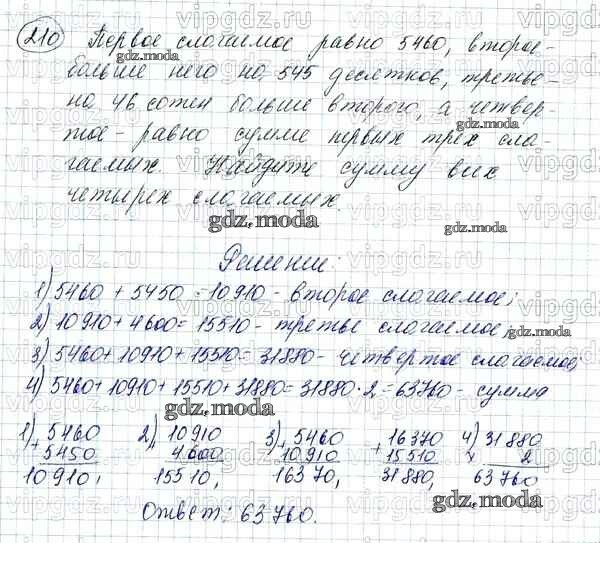 210 Первое слагаемое равно 5460, второе-
больше него на 545 десятков, третье-
на 46 сотен больше второго, а четвер-
тое - равно сумме первых трёх сла-
гаемых. Найдите сумму всех
четырех слагаемых.
Решение:
1) 5460 + 5450 = 10910 - второе слагаемое;
2) 10910 + 4600 = 15510 - третье слагаемое,
3) 5460 + 10910 + 15510 = 31880 - четвертое слагаемое;
4) 5460 + 10910 + 15510 + 31880 = 31880 · 2 = 63760 - сумма
1) 5460 2) 10910 3) 5460 16370 4) 31880
+ 5450 + 4600 + 10910 + 15510 x 2
10910, 15510, 16370, 31880, 63760
Ответ: 63760.
gdz.moda
vipgdz